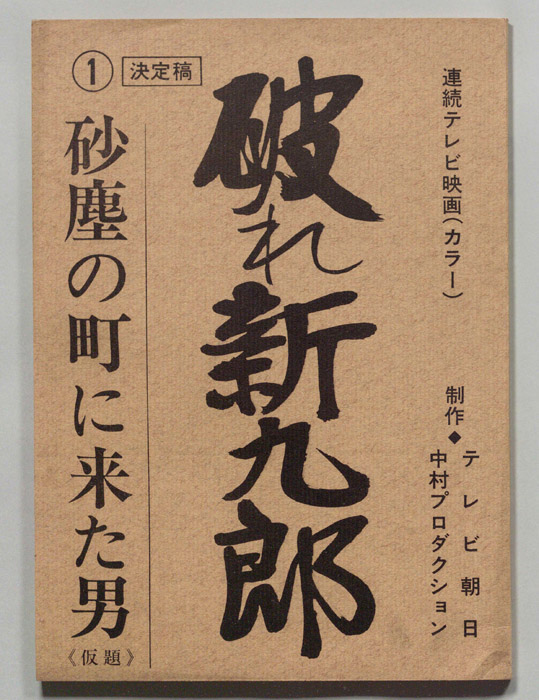 連続テレビ映画(カラー)
制作◆テレビ朝日
中村プロダクション
破れ新九郎
① 決定稿
砂塵の町に来た男
《仮題》